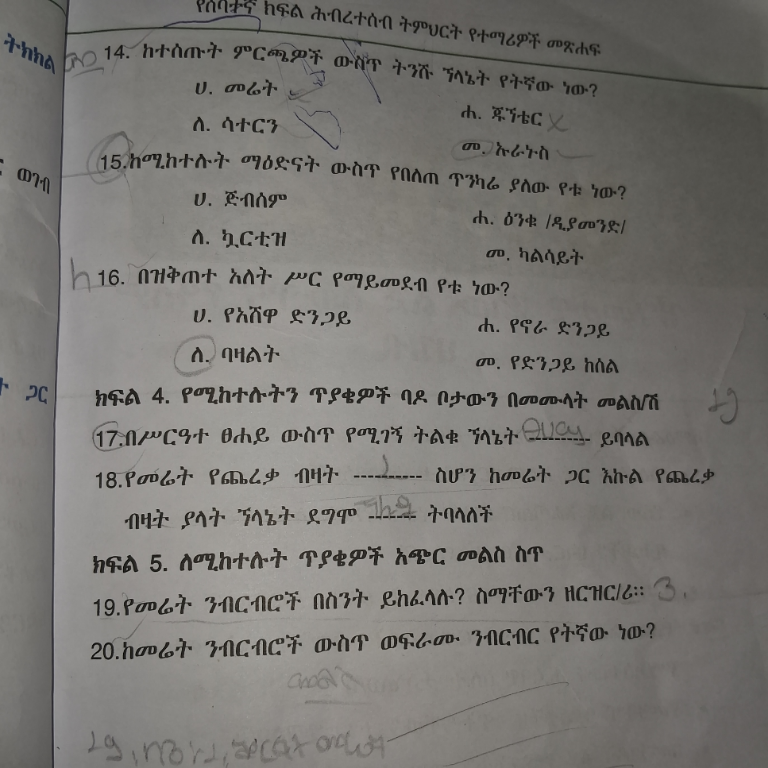 የሰባተኛ ክፍል ሕብረተሰብ ትምህርት የተማሪዎች መጽሐፍ
ትክክል
14. ከተሰጡት ምርጫዎች ውስጥ ትንሹ ኘላኔት የትኛው ነው?
ሀ. መሬት
ሐ. ጁኘቴር
ለ. ሳተርን
መ. ኡራኑስ
15.ከሚከተሉት ማዕድናት ውስጥ የበለጠ ጥንካሬ ያለው የቱ ነው?
ሀ. ጅብሰም
ሐ. ዕንቁ /ዲያመንድ/
ለ. ኳርቲዝ
መ. ካልሳይት
16. በዝቅጠተ አለት ሥር የማይመደብ የቱ ነው?
ሀ. የአሸዋ ድንጋይ
ሐ. የኖራ ድንጋይ
ለ. ባዛልት
መ. የድንጋይ ከሰል
ጋር
ክፍል 4. የሚከተሉትን ጥያቄዎች ባዶ ቦታውን በመሙላት መልስ/ሽ
17.በሥርዓተ ፀሐይ ውስጥ የሚገኝ ትልቁ ኘላኔት ---------- ይባላል
18.የመሬት የጨረቃ ብዛት ---------- ስሆን ከመሬት ጋር እኩል የጨረቃ
ብዛት ያላት ኘላኔት ደግሞ ------- ትባላለች
ክፍል 5. ለሚከተሉት ጥያቄዎች አጭር መልስ ስጥ
19.የመሬት ንብርብሮች በስንት ይከፈላሉ? ስማቸውን ዘርዝር/ሪ። 3.
20.ከመሬት ንብርብሮች ውስጥ ወፍራሙ ንብርብር የትኛው ነው?